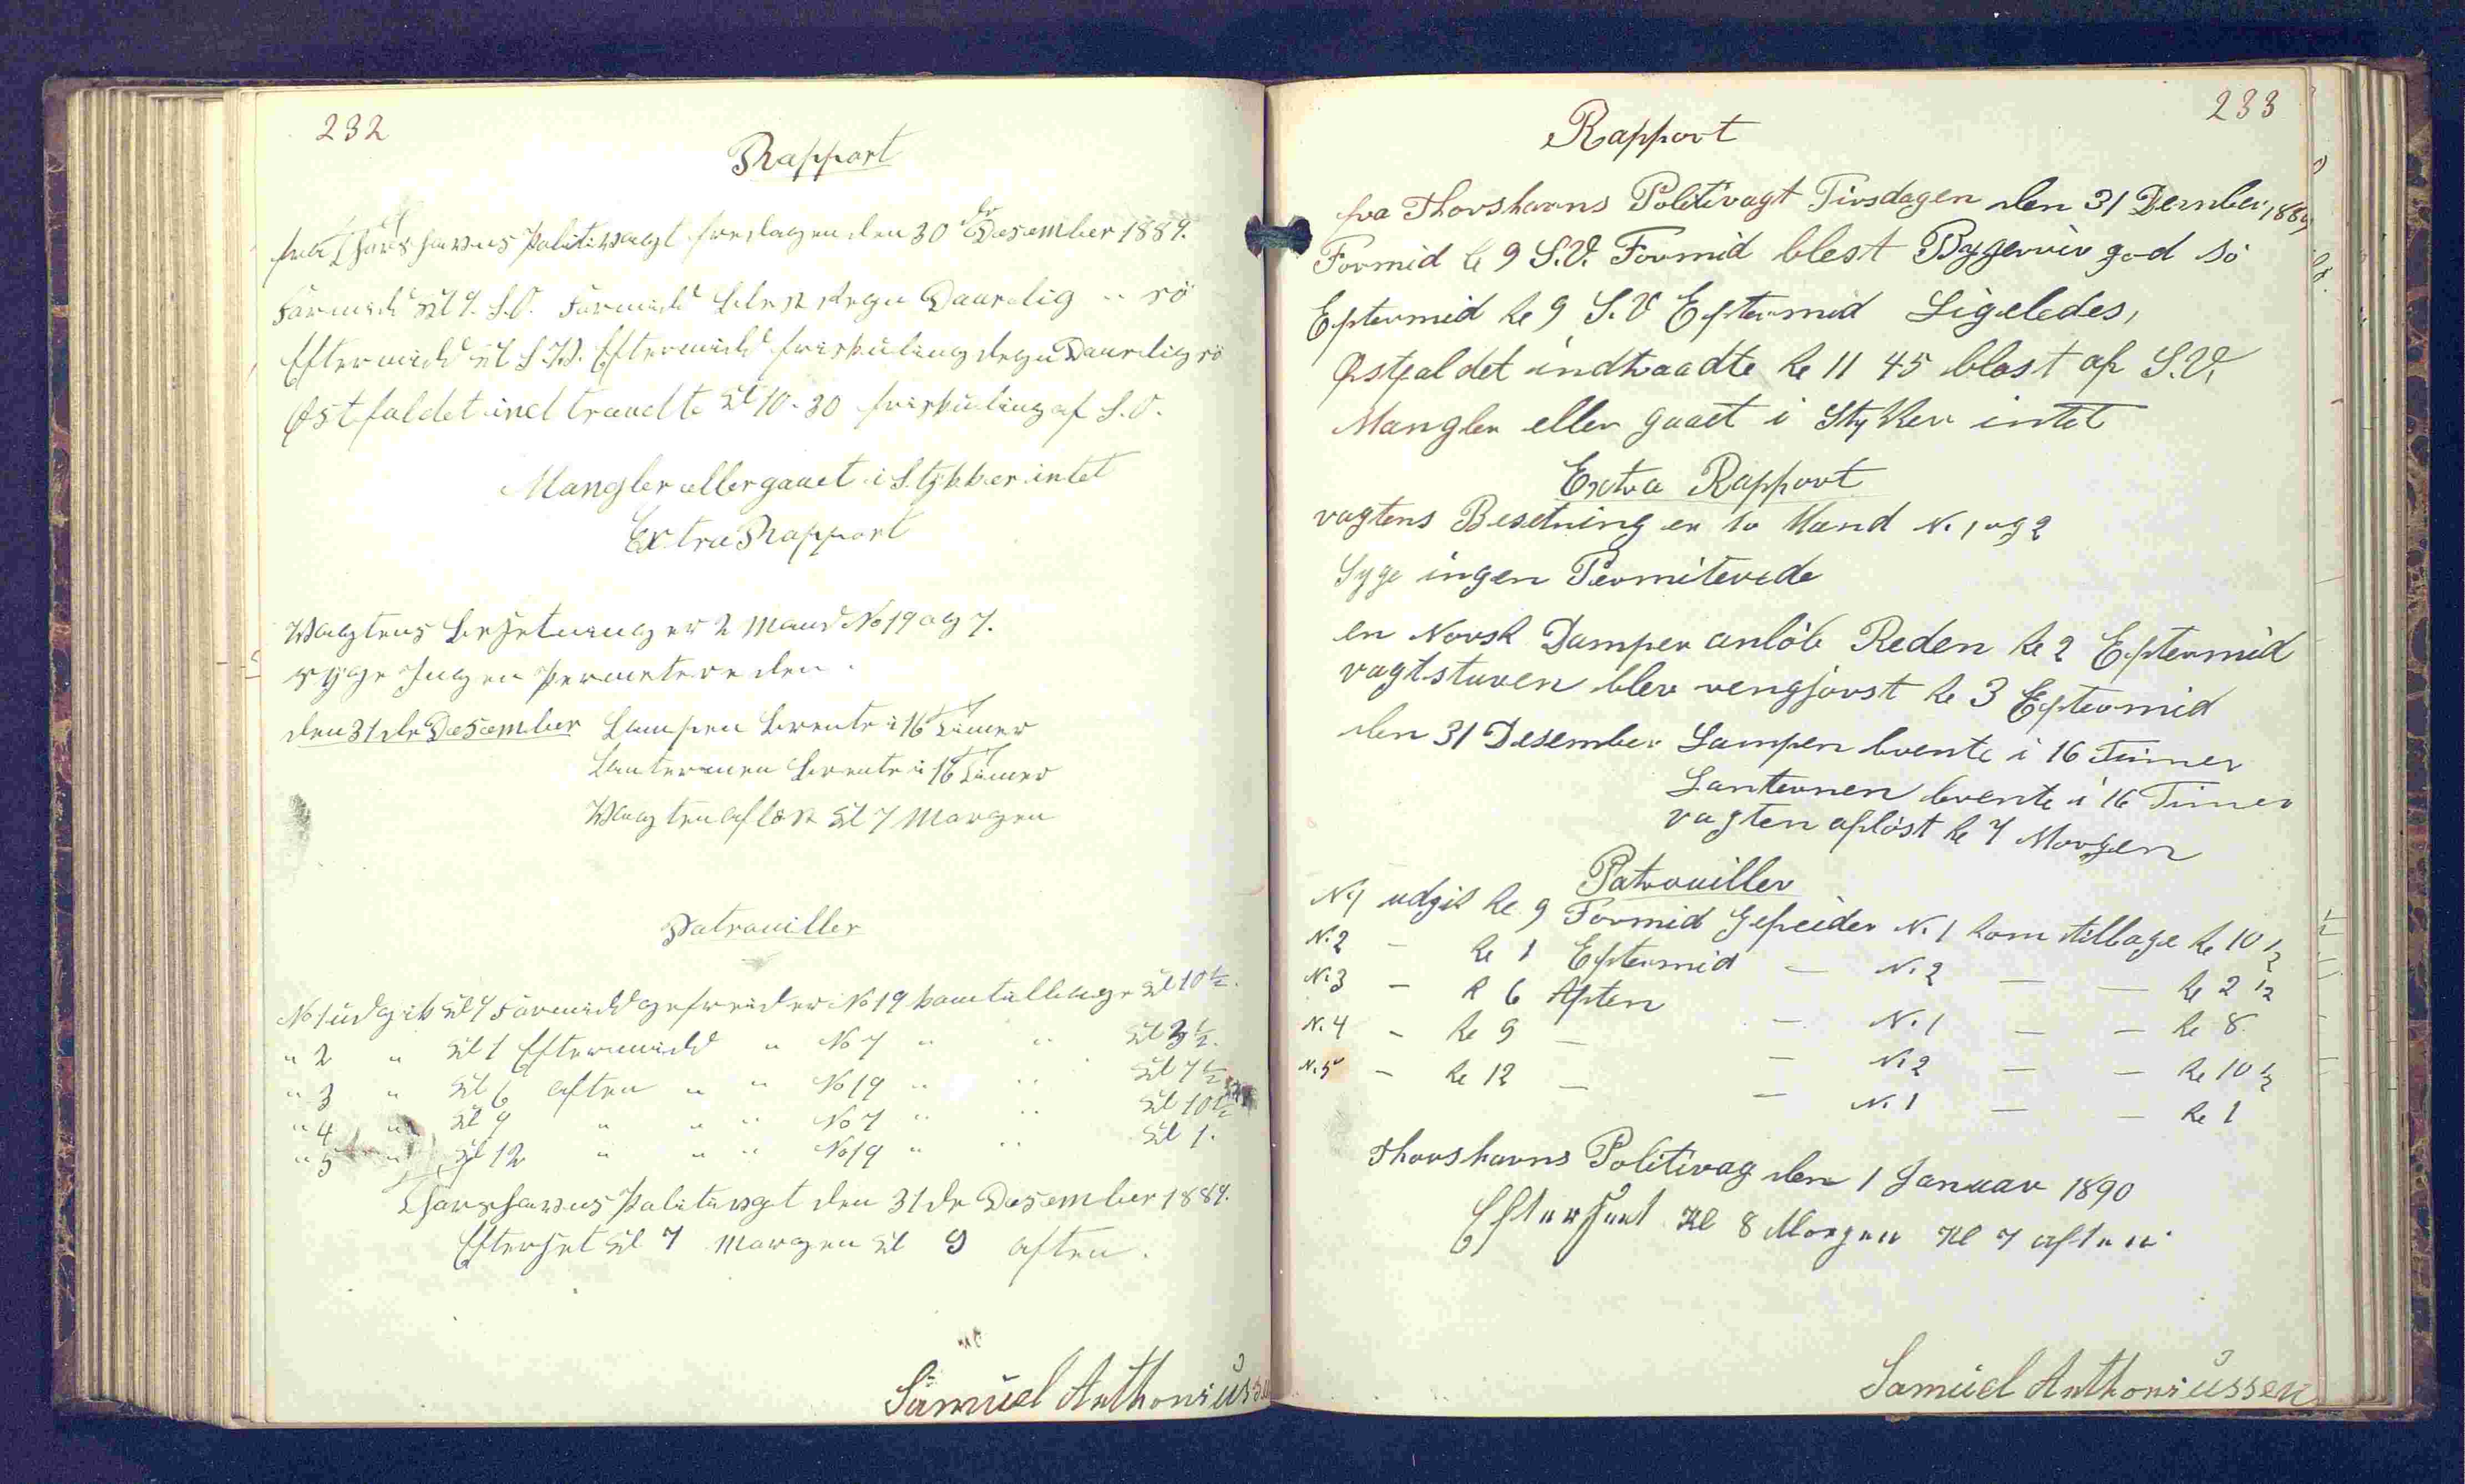 232
Rapport
fra Thorshavns Politivagt den 30 de Desember 1889.
Formidd Kl 9. S.O. Formidd blest regn Daarlig " sö
Eftermidd Kl S.W. Eftermidd friskuling regn Daarlig sö
Østfaldet indtraadte Kl 10-30 friskuling af S.O.
Mangler eller gaaet i Stykker intet
Extra Rapport
Wagtens besetning er 2 Mand No 19 og 7.
syge Ingen
den 31 de Desember Lampen brente i 16 Timer
Lanternen brente i 16 Timer
Wagten afløst Kl 7 Morgen
Patrouiller
No 1 udgik Kl 9 Formidd gefreider No 19 kom tilbage Kl 10 1/2.
" 2 " Kl 1 Eftermidd " No 7 " " Kl 3 1/2.
" 3 " Kl 6 aften " " No 19 " " Kl 7 1/2
" 4 " Kl 9 " " " No 7 " " Kl 10 1/2
" 5 " Kl 12 " " " No 19 " " Kl 1.
Thorshavns Politivagt den 31 de Desember 1889.
Efterset Kl 7 Morgen Kl 9 aften.
Samuel Anthoniussen
233
Rapport
fra Thorshavns Politivagt Tirsdagen den 31 Desember 1889
Formid kl 9 S.V. Formid blest Byggeveir god sö
Eftermid kl 9 S.V Eftermid Ligeledes,
Østfaldet indtraadte kl 11 45 blast af S.V.
Mangler eller gaaet i Stykker intet
Extra Rapport
vagtens Besetning er to Mand N. 1 og 2
Syge ingen Permiterede
en Norsk Damper anlöb Reden kl 2 Eftermid
vagtstuven blev rengjörst kl 3 Eftermid
den 31 Desember Lampen brente i 16 Timer
Lanternen brente i 16 Timer
vagten aflöst kl 7 Morgen
Patrouiller
N.1 udgik kl 9 Formid Gefreider N. 1 kom tilbage kl 10 1/2
N.2 - kl 1 Eftermid - N. 2 - - kl 2 1/2
N.3 - k 6 Aften - N. 1 - - kl 8
N.4 - kl 9 - - N. 2 - - kl 10 1/2
N.5 - kl 12 - - N. 1 - - kl 1
Thorshavns Politivag den 1 Januar 1890
Efterseet Kl 8 Morgen Kl 7 aften
Samuel Anthoniussen